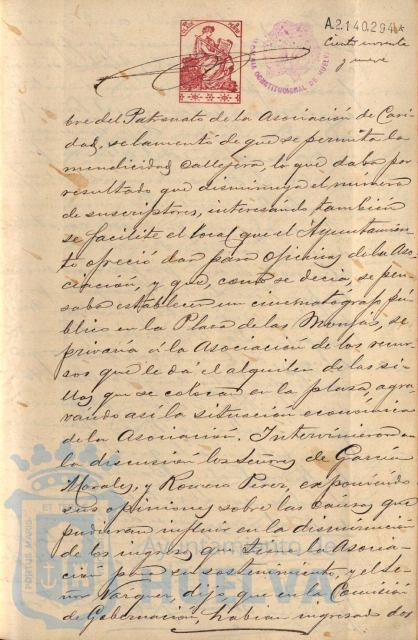 A.2140.294*
Ciento noventa
y nueve
ALCALDIA CONSTITUCIONAL DE HUELVA
bre del Patronato de la Asociación de Cari-
dad, se lamentó de que se permita la
mendicidad callejera, lo que daba por
resultado que disminuya el número
de suscriptores, interesando también
se facilite el local que el Ayuntamien-
to ofreció dar para oficinas de la Aso-
ciación, y que, como se decía, se pen-
saba establecer un cinematógrafo pú-
blico en la Plaza de las Monjas, se
privaría á la Asociación de los recur-
sos que le da el alquiler de las si-
llas que se colocan en la plaza, agra-
vando así la situación económica
de la Asociación. Intervinieron en
la discusión los Señores de García
Morales, y Romero Perez, exponiendo
sus opiniones sobre las causas que
pudieran influir en la disminución
de los ingresos que tenía la Asocia-
ción para su sostenimiento, y el Se-
ñor Vazquez, dijo, que en la Comisión
de Gobernación, habían ingresado dos
PORTUS MARIS
Ayuntamiento de
HUELVA